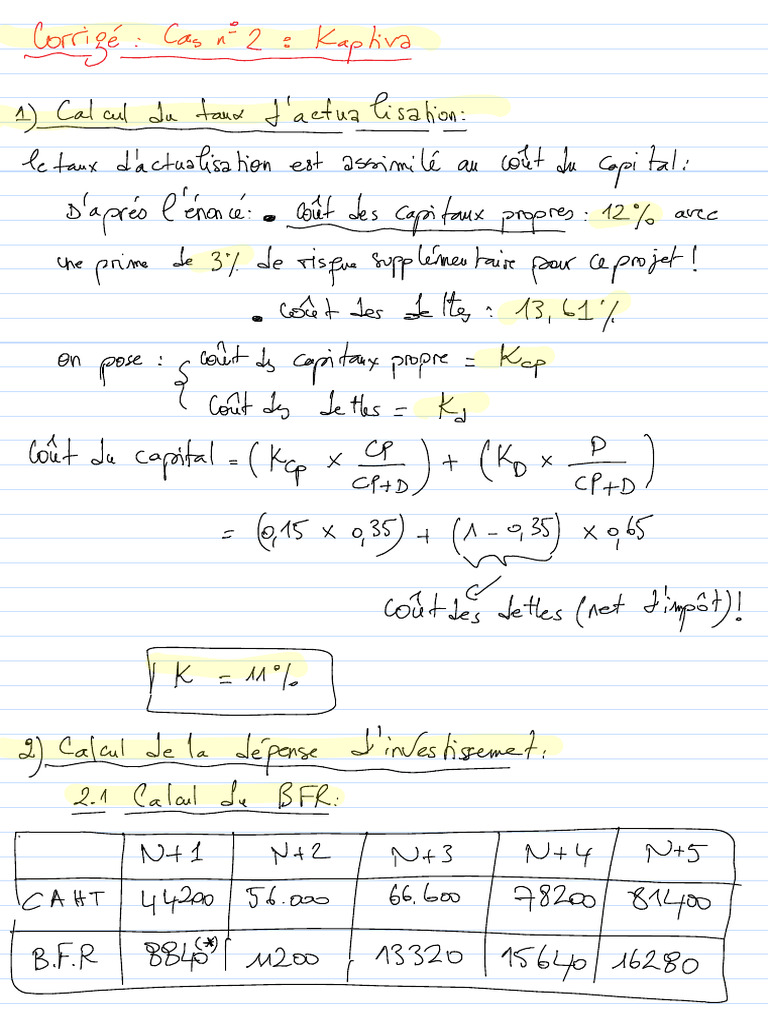 Corrigé : Cas n° 2 : Kaptiva
1) Calcul du taux d'actualisation:
le taux d'actualisation est assimilé au coût du capital:
D'après l'énoncé: • coût des capitaux propres : 12% avec
une prime de 3% de risque supplémentaire pour ce projet !
• coût des dettes : 13,61%
on pose : { coût des capitaux propre = Kcp
coût des dettes = Kd
Coût du capital = (Kcp × CP/(CP+D)) + (KD × D/(CP+D))
= (0,15 × 0,35) + (1 - 0,35) × 0,65
coût des dettes (net d'impôt) !
K = 11%
2) Calcul de la dépense d'investissement:
2.1 Calcul du BFR:
N+1 N+2 N+3 N+4 N+5
CAHT 44200 56.000 66.600 78200 81400
B.F.R 8840(*) 11200 13320 15640 16280